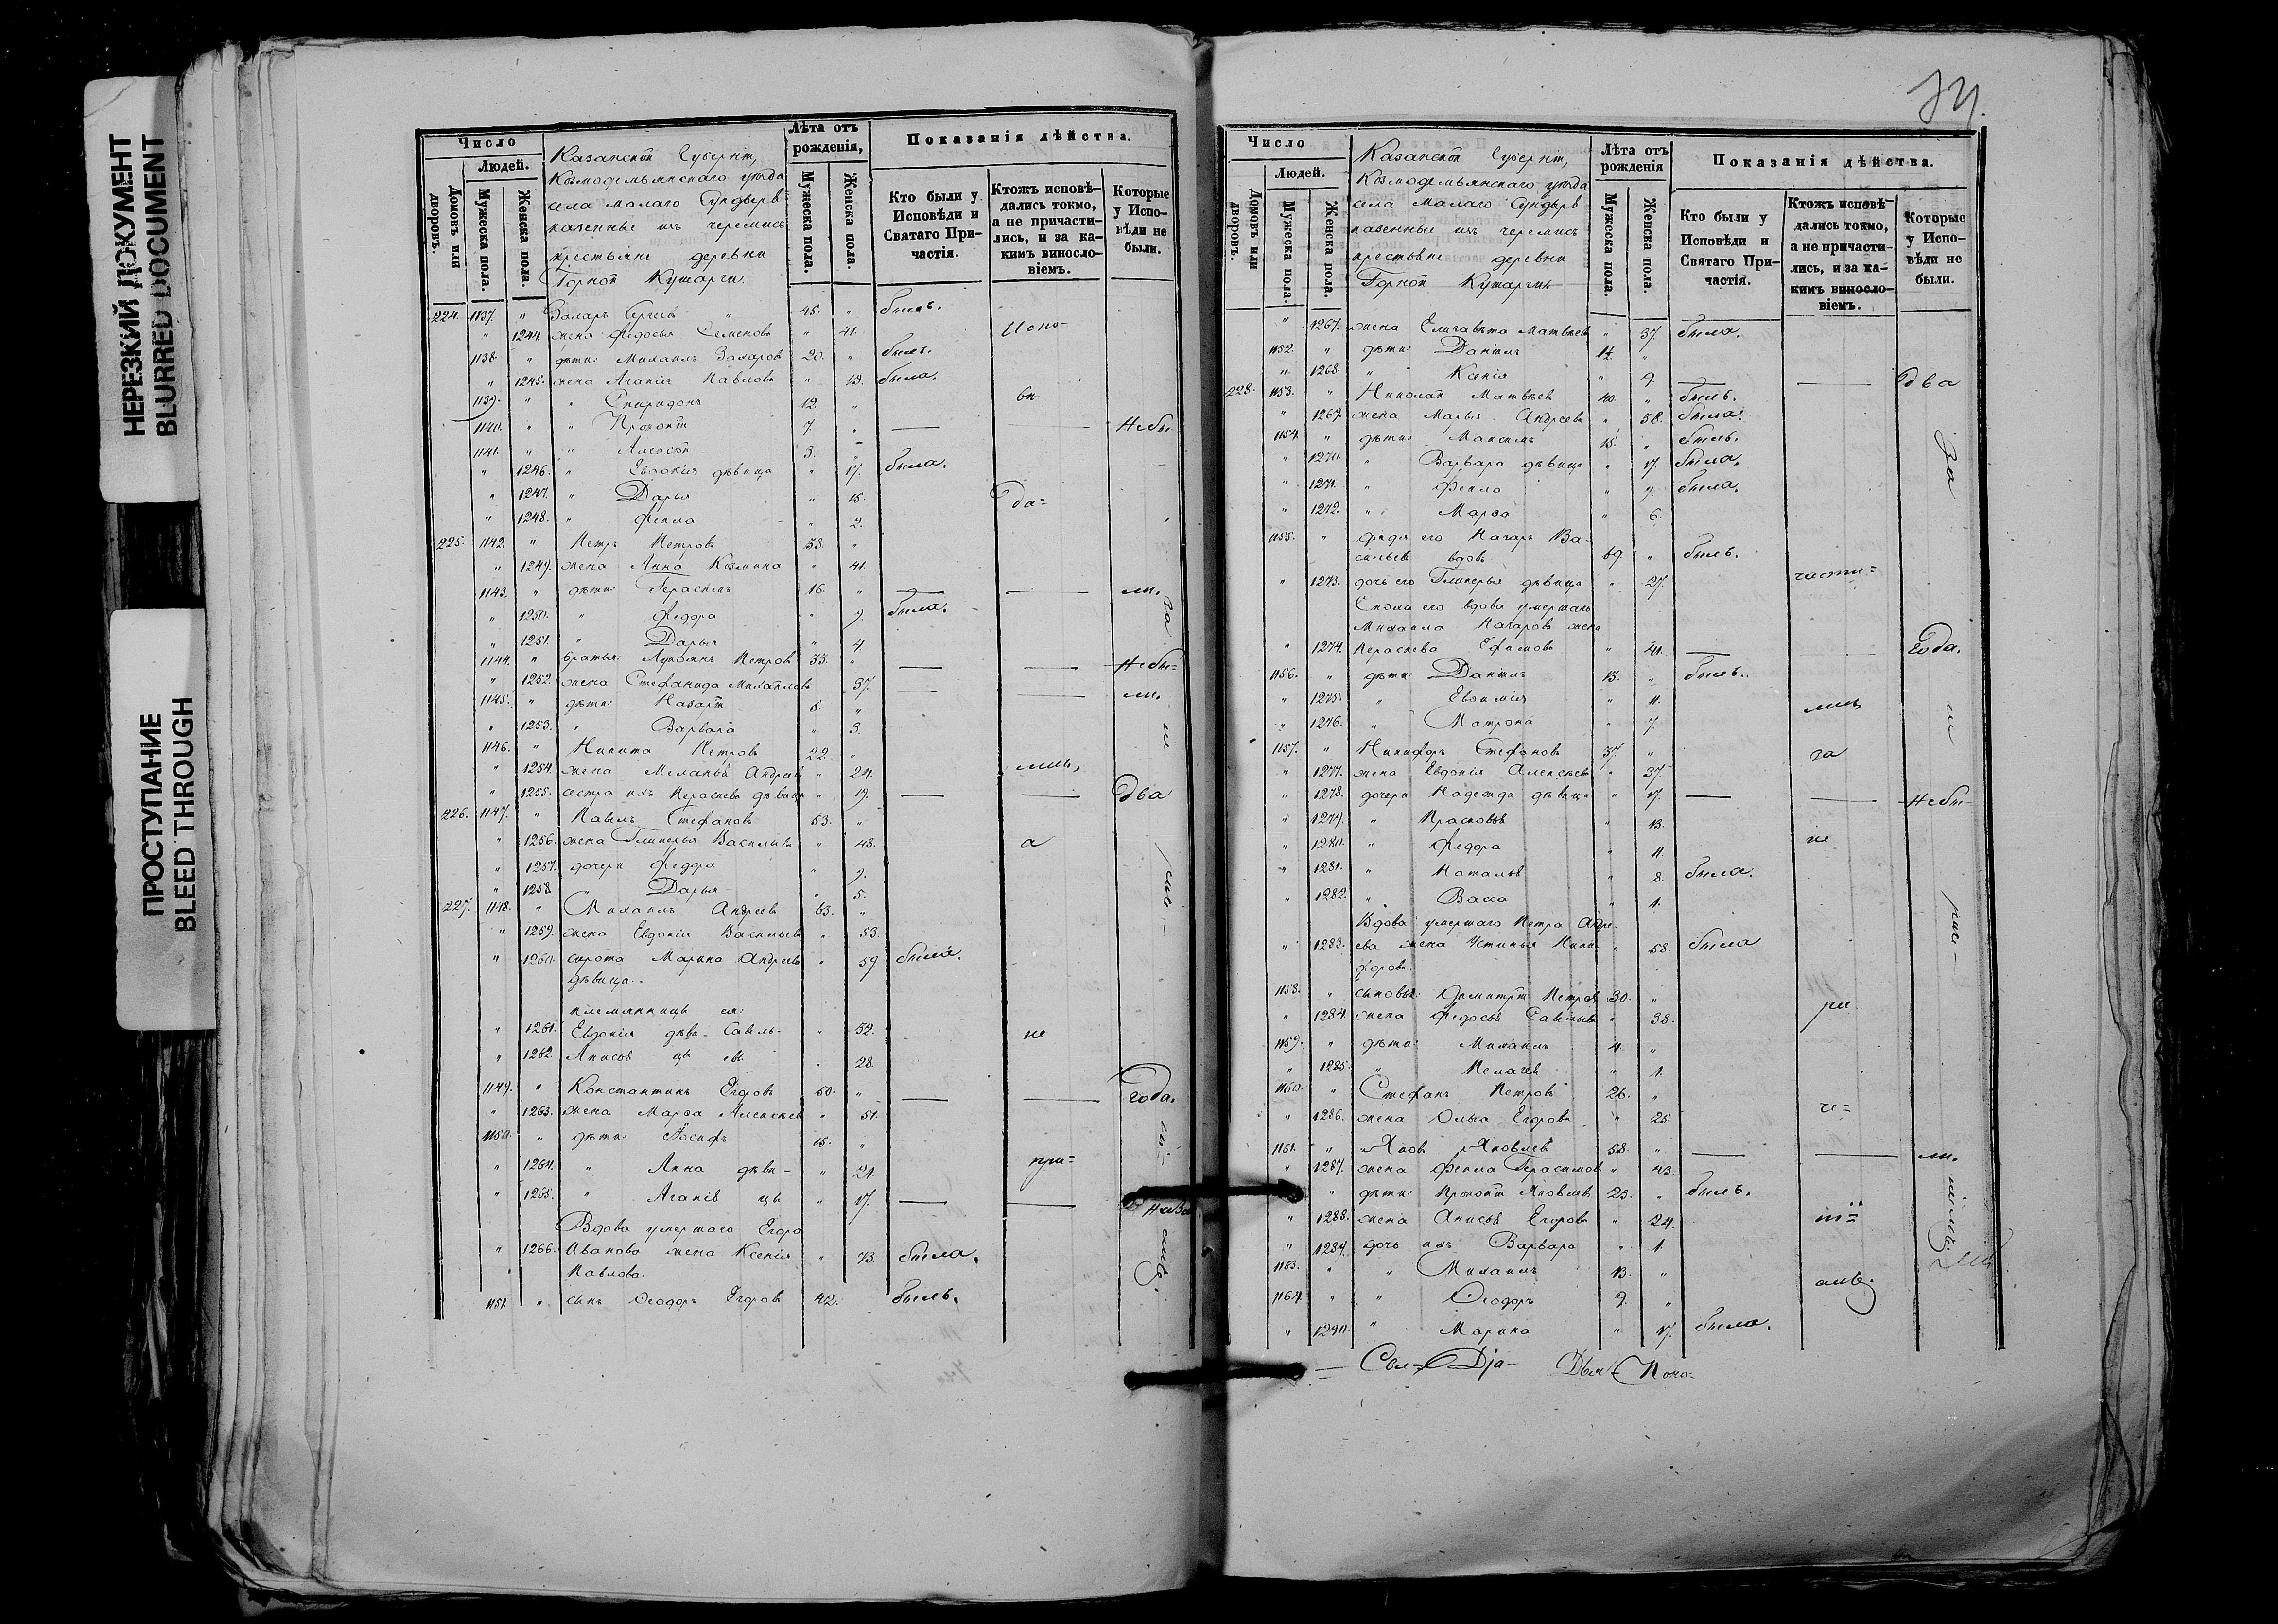 НЕРЕЗКИЙ ДОКУМЕНТ
BLURRED DOCUMENT
ПРОСТУПАНИЕ
BLEED THROUGH
Число
Людей.
Домовъ или дворовъ.
Мужеска пола.
Женска пола.
Казанской Губерніи,
Козмодемьянскаго уѣзда
села Малаго Сундыря
казенные изъ черемисъ
крестьяне деревни
Горной Кушерги.
Лѣта отъ рожденія,
Мужеска пола.
Женска пола.
Показанія дѣйства.
Кто были у Исповѣди и Святаго Причастія.
Ктожъ исповѣдались токмо, а не причастились, и за какимъ винословіемъ.
Которые у Исповѣди не были.
224. 1137. " Захаръ Сергѣев 45. " былъ.
" 1244. жена Федосья Семенова " 41. Испо-
1138. " дѣти: Михаилъ Захаров 20. " былъ.
" 1245. жена Агапія Павлова " 19. была.
1139. " " Спиридонъ 12. " вѣ
1140. " " Прокопій 7. " — — Небы-
1141. " " Алексѣй 3. "
" 1246. " Евдокія дѣвица " 17. была.
" 1247. " Дарья " 15. да=
" 1248. " Фекла " 2.
225. 1142. " Петръ Петровъ 38. "
" 1249. жена Анна Козмина " 41.
1143. " дѣти: Герасимъ 16. " — — ли.
" 1250. " Федора " 9. была.
" 1251. " Дарья " 4
1144. " братья: Лукоянъ Петров 33. " — — Небы=
" 1252. жена Стефанида Михайлова 37. — — ли.
1145. " дѣти: Назарій 8. "
" 1253. " Варвара " 3.
1146. " Никита Петровъ 22. "
" 1254. жена Меланья Андреев " 24. лись,
" 1255. сестра ихъ Параскева дѣвица " 19. — — Два
226. 1147. " Павелъ Стефановъ 53. "
" 1256. жена Гликерья Васильева " 48. а
" 1257. дочери Федора " 9.
" 1258 " Дарья " 5.
227. 1148. " Михаилъ Андреев 63. "
" 1259. жена Евдокія Васильева " 53.
" 1260. сирота Марина Андреева " 59. была.
дѣвица.
племянницы ея:
" 1261. Евдокія дѣви- Савель- " 32. не
" 1262. Анисья цы евы " 28.
1149. " Константинъ Егоровъ 50. " — — года.
" 1263. жена Марѳа Алексѣева " 51.
1150. " дѣти: Іосифъ 15. "
" 1264. " Анна дѣви- " 21. при=
" 1265. " Агапія цы " 17. — —
Вдова умершаго Егора
" 1266. Иванова жена Ксенія " 73. была.
Павлова.
1151. " сынъ Ѳеодоръ Егоров 42. былъ.
Число
Людей.
Домовъ или дворовъ.
Мужеска пола.
Женска пола.
Казанской Губерніи,
Козмодемьянскаго уѣзда
села Малаго Сундыря
казенные изъ черемисъ
крестьяне деревни
Горной Кушерги
Лѣта отъ рожденія
Мужеска пола.
Женска пола.
Показанія дѣйства.
Кто были у Исповѣди и Святаго Причастія.
Ктожъ исповѣдались токмо, а не причастились, и за какимъ винословіемъ.
Которые у Исповѣди не были.
" 1267. жена Елизавѣта Матвѣева " 37. была.
1152. " дѣти: Даніилъ 14. "
" 1268. " Ксенія " 9. — — Два
228. 1153. " Николай Матвѣев 40. " былъ.
" 1269. жена Марья Андреева " 38. была.
1154. " дѣти: Максимъ 15. " былъ.
" 1270. " Варвара дѣвица " 17. была.
" 1271. " Фекла " 9. была.
" 1272. " Марѳа " 6.
1155. " дядя его Назаръ Ва-
сильевъ вдовъ 69. " былъ.
" 1273. дочь его Гликерья дѣвица " 27. части=
Сноха его вдова умершаго
Михаила Назарова жена
" 1274. Параскева Ефимова " 41. — — года.
1156. " дѣти: Даніилъ 13. " былъ.
" 1275. " Евѳимія " 11. лись
" 1276. " Матрона " 7.
1157. " Никифоръ Стефановъ 37. " за
" 1277. жена Евдокія Алексѣева " 37.
" 1278. дочери Надежда дѣвица " 17. — — Небы-
" 1279. " Прасковья " 13.
" 1280. " Федора " 11. не
" 1281. " Наталья " 8. была.
" 1282. " Васса " 1.
Вдова умершаго Петра Андре-
" 1283. ева жена Устинья Ники " 58. была
форова.
1158. " сыновья: Димитрій Петров 30. "
" 1284. жена Федосья Савельева " 38. рш
1159. " дѣти: Михаилъ 4. "
" 1285. " Пелагея " 1.
1160. " Стефанъ Петровъ 26. "
" 1286. жена Ольга Егорова " 25. че=
1161. " Яковъ Яковлев 58. " — — ли.
" 1287. жена Фекла Герасимова " 43.
" дѣти: Прокопій Яковлевъ 23. " былъ.
" 1288. жена Анисья Егорова " 24.
" 1289. дочь ихъ Варвара " 1.
1163. " " Михаилъ 13. "
1164. " " Ѳеодоръ 9. "
" 1290. " Марина " 17. была.